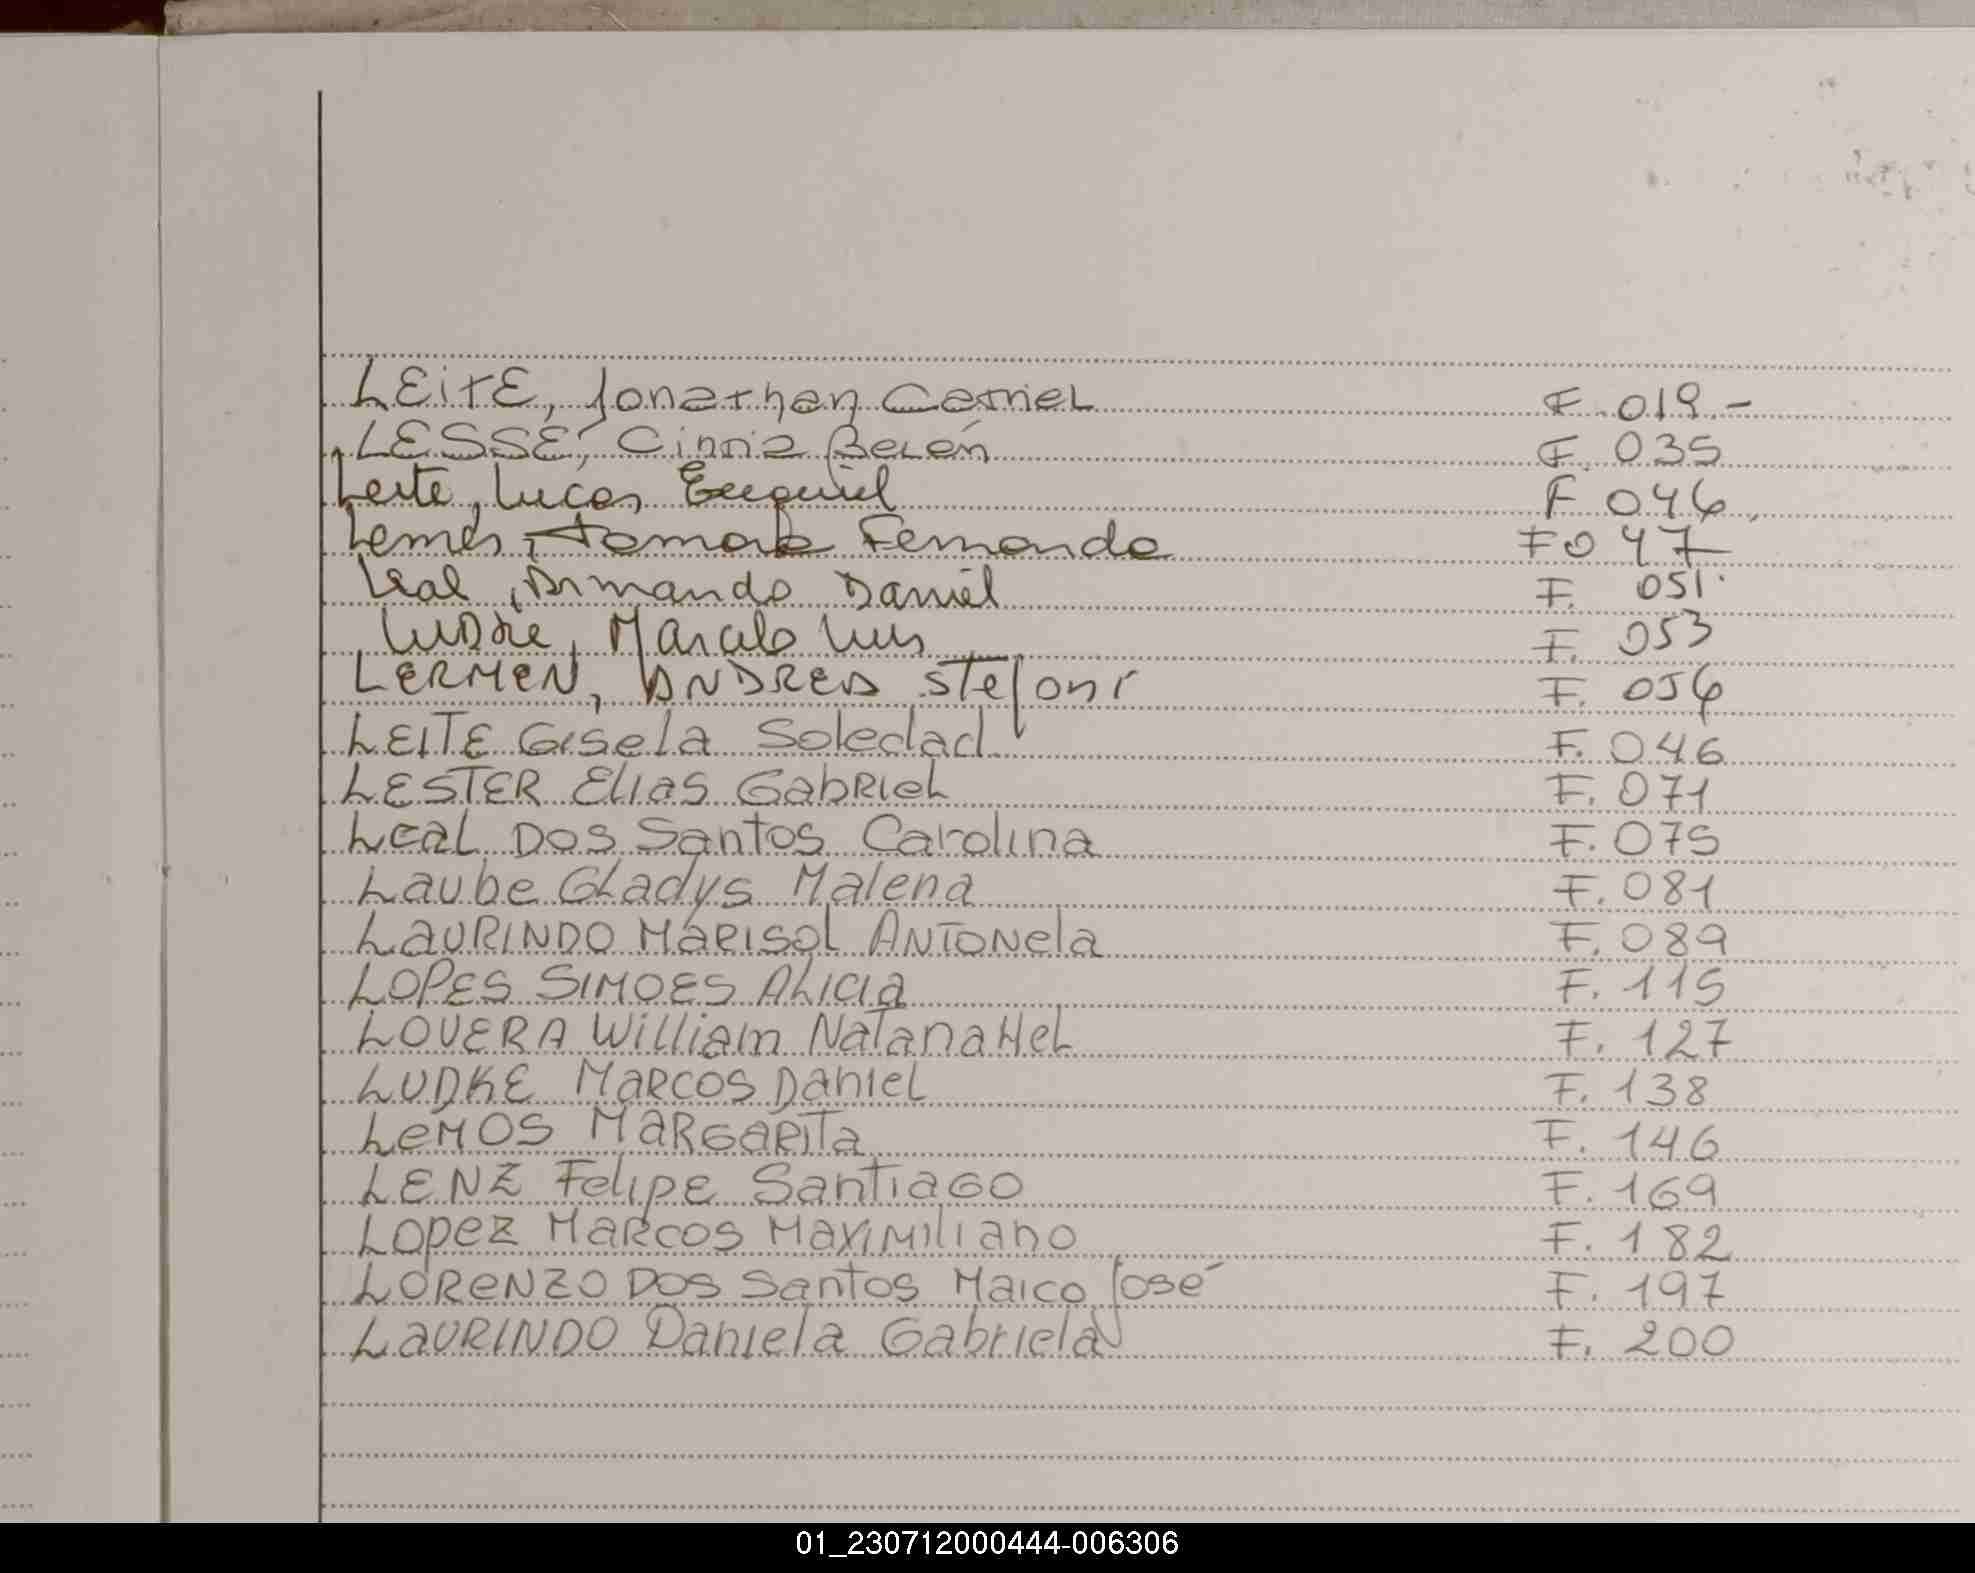 LEITE, Jonathan Camel F. 019.-
LESSE, Cintia Belén F. 035
Leite, Lucas Ezequiel F 046
Lemes, Fernando F047
Leal, Armando Daniel F. 051.
LUDKE, Marcelo Luis F. 053
LERMEN, ANDREA STefani F. 056
LEITE Gisela Soledad F. 046
LESTER Elias Gabriel F. 071
Leal Dos Santos Carolina F. 075
Laube Gladys Malena F. 081
LAURINDO MARISOL ANTONela F. 089
LOPES SIMOES ALICIA F. 115
LOVERA William NaTanaHeL F. 127
LUDKE MARCOS DANIEL F. 138
LeMOS MARGARITA F. 146
LENZ Felipe SanTiaGO F. 169
LOPEZ MARCOS MAXIMILIANO F. 182
LORENZO DOS Santos Maico José F. 197
LAURINDO Daniela Gabriela F. 200
01_230712000444-006306